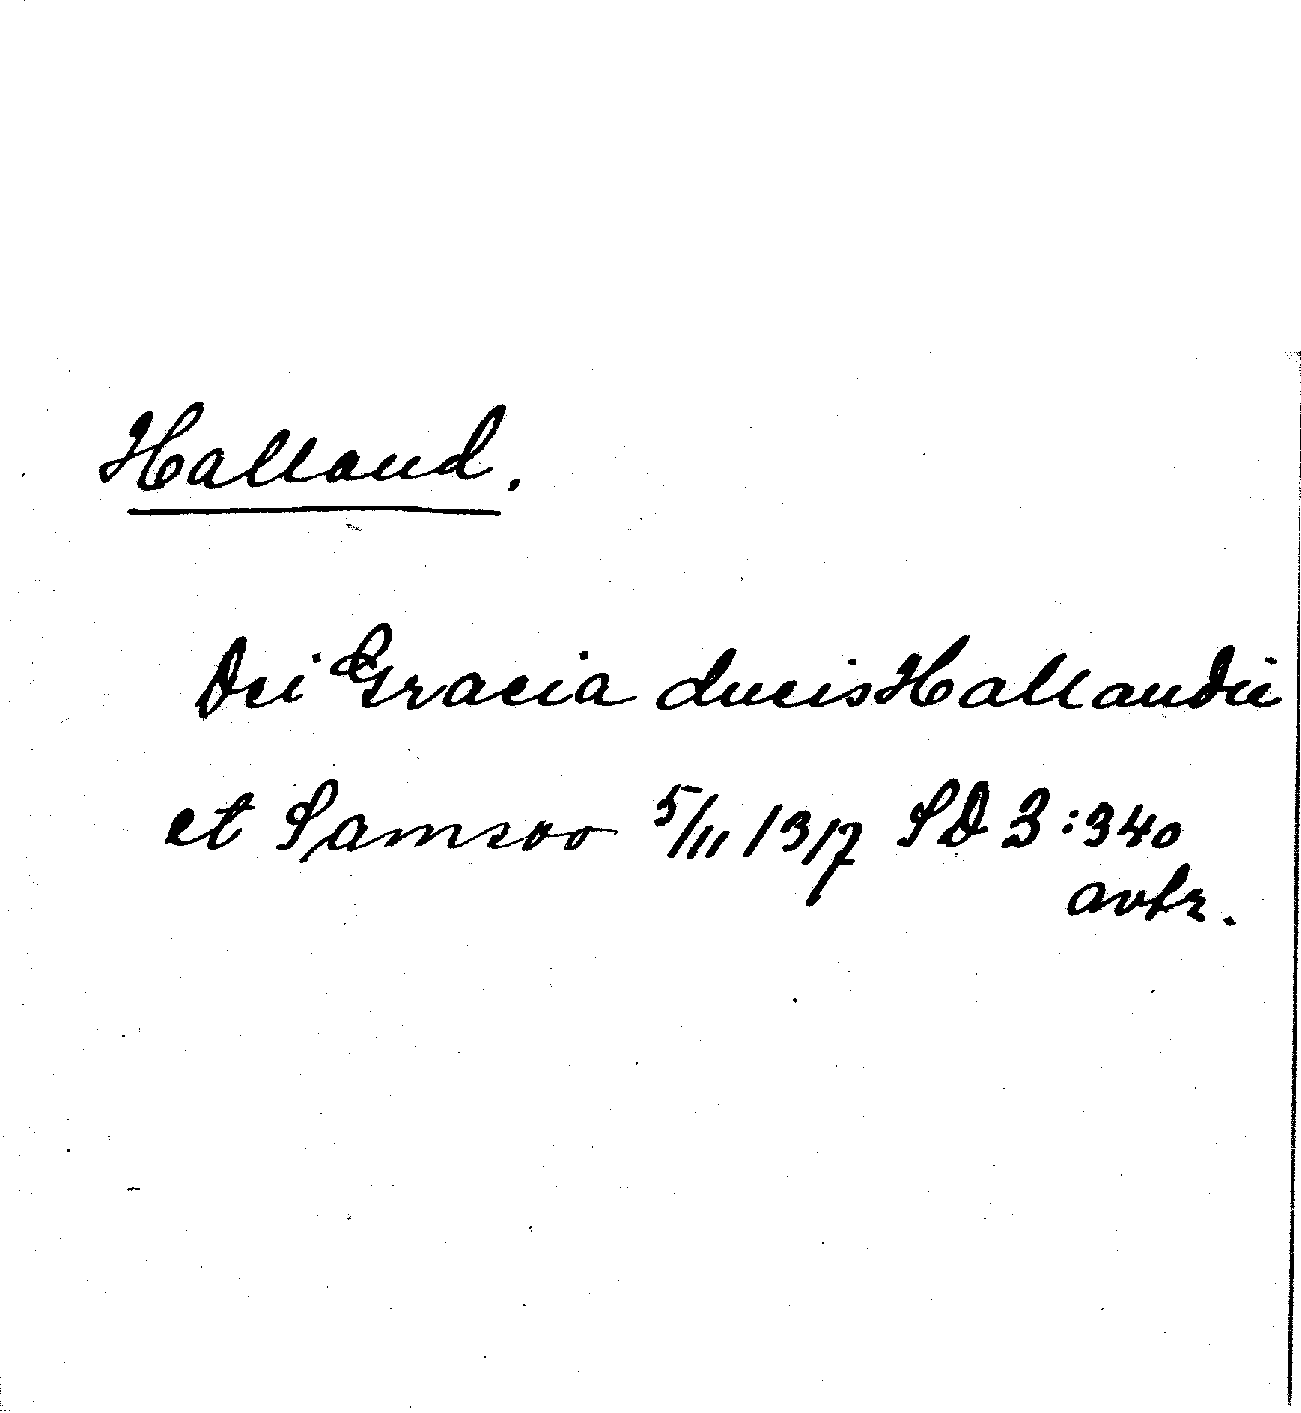 Halland.
Dei Gracia ducis Hallandie
et Samsoo 5/11 1317 SD 3:340
avtr.